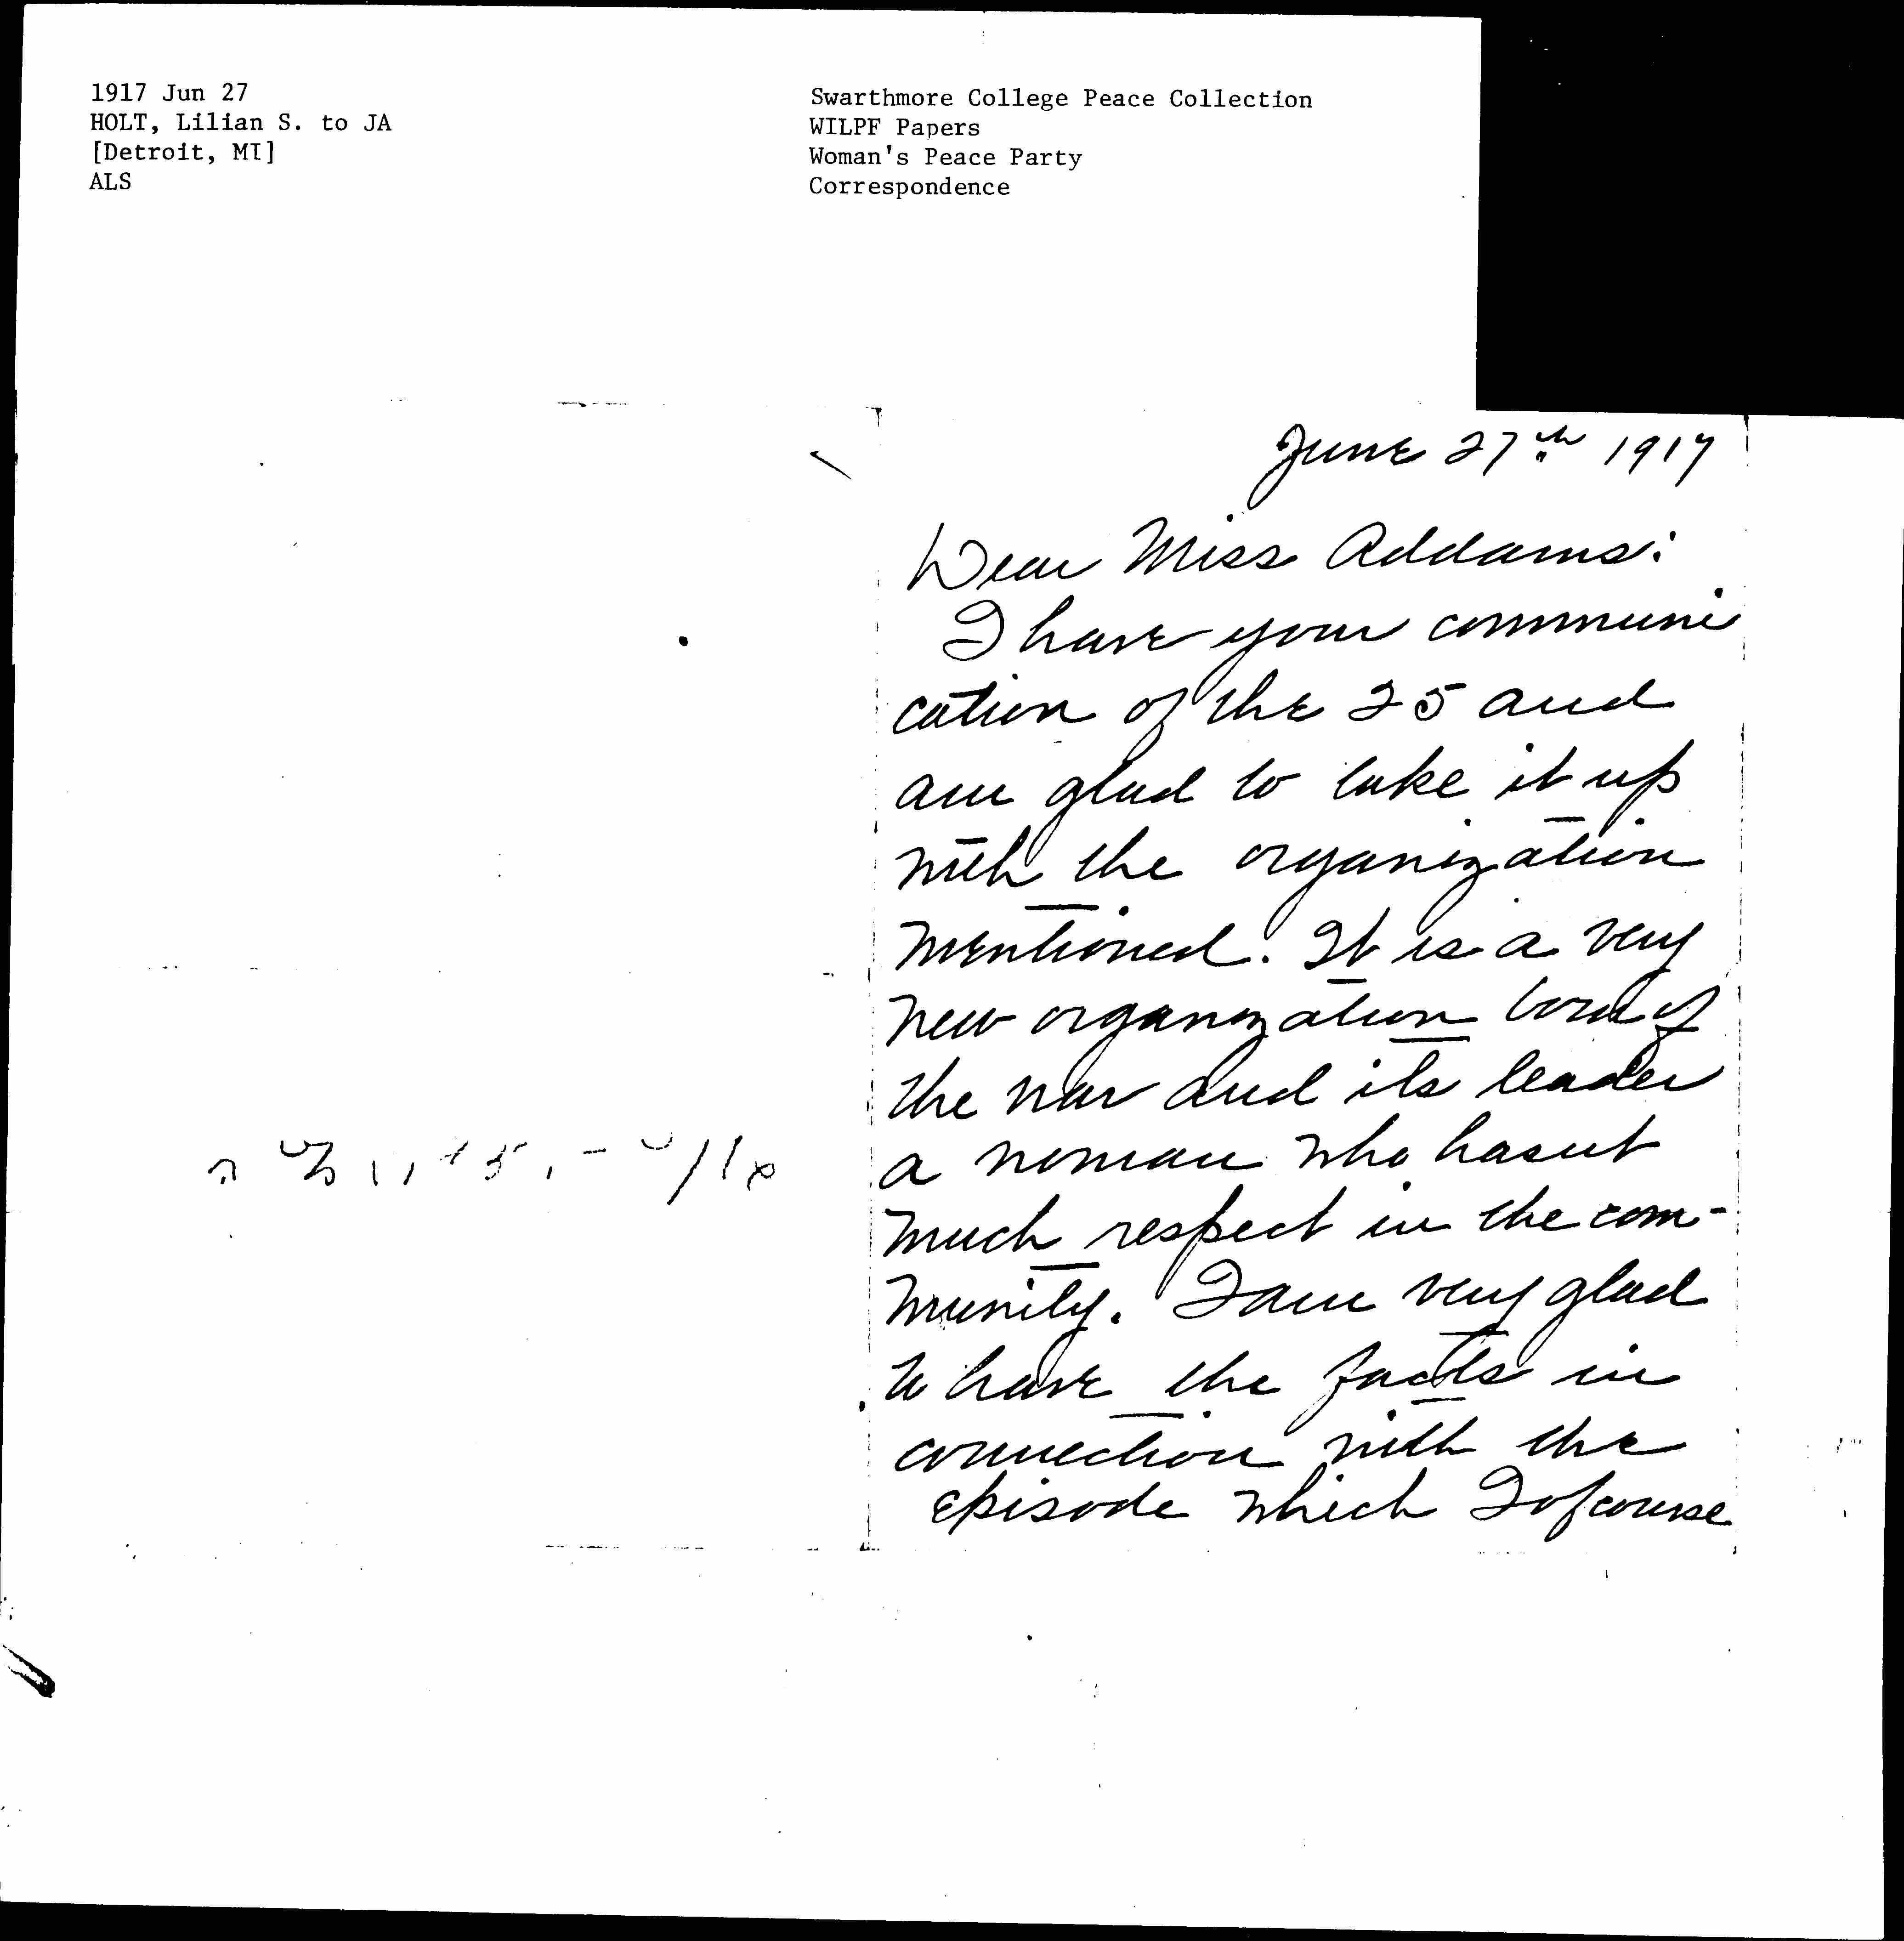 1917 Jun 27
HOLT, Lilian S. to JA
[Detroit, MI]
ALS
Swarthmore College Peace Collection
WILPF Papers
Woman's Peace Party
Correspondence
June 27th 1917
Dear Miss Addams:
I have your communi
cation of the 25 and
am glad to take it up
with the organization
mentioned. It is a very
new organization born of
the war and its leader
a woman who hasnt
much respect in the com-
munity. I am very glad
to have the facts in
connection with the
episode which I of course